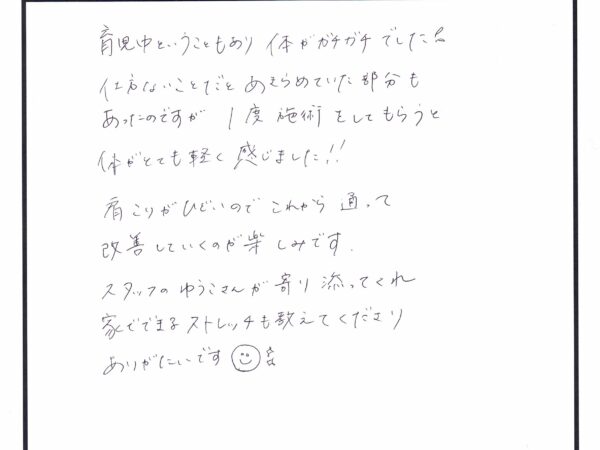 育児中ということもあり 体がガチガチでした!
仕方ないことだと あきらめていた部分も
あったのですが 1度 施術をしてもらうと
体がとても軽く 感じました!!
肩こりがひどいので これから 通って
改善していくのが楽しみです.
スタッフの ゆうこさんが 寄り添ってくれ
家でできるストレッチも教えてくださり
ありがたいです